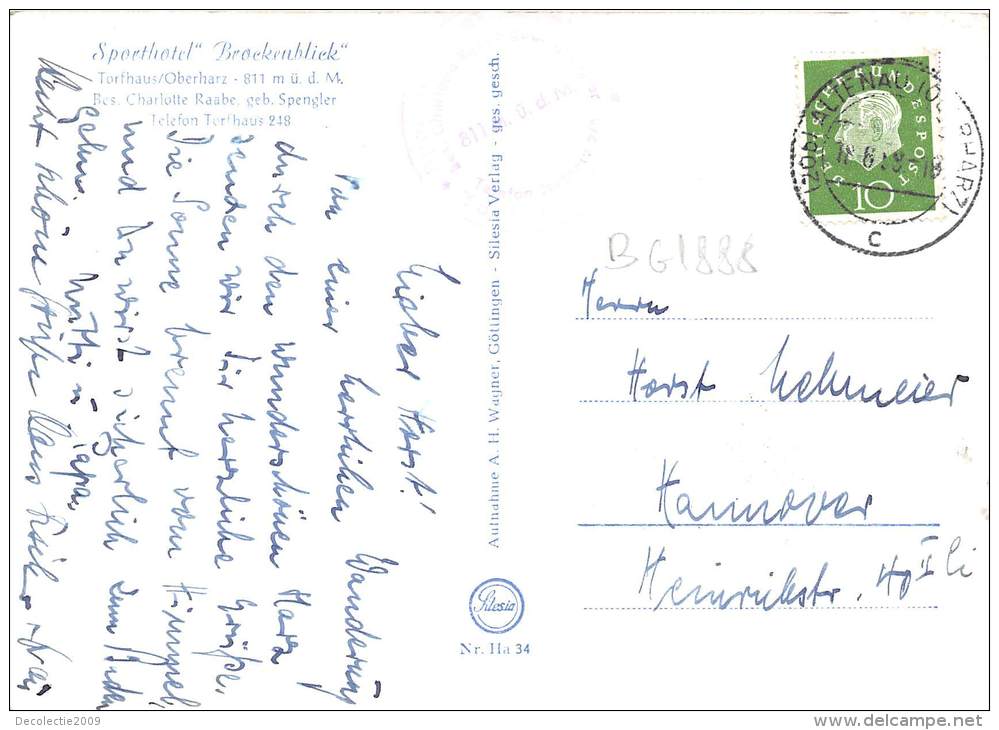 Sporthotel "Brockenblick"
Torfhaus/Oberharz - 811 m ü. d. M.
Bes. Charlotte Raabe, geb. Spengler
Telefon Torfhaus 248
Lieber Horst!
Von einer herrlichen Wanderung
durch den wunderschönen Harz
senden wir Dir herzliche Grüße.
Die Sonne brennt vom Himmel,
und Du wirst sicherlich zum Baden
gehn.
Mutti u. Papa
Recht schöne Grüße
Aufnahme A. H. Wagner, Göttingen - Silesia Verlag - ges. gesch.
Silesia
Nr. Ha 34
811 m ü. d. M.
DEUTSCHE BUNDESPOST
10
(20b) ALTENAU (OBERHARZ)
c
BG1888
Herrn
Horst Lehmeier
Hannover
Heinrichstr. 40 I li
Decolectie2009
delcampe.net